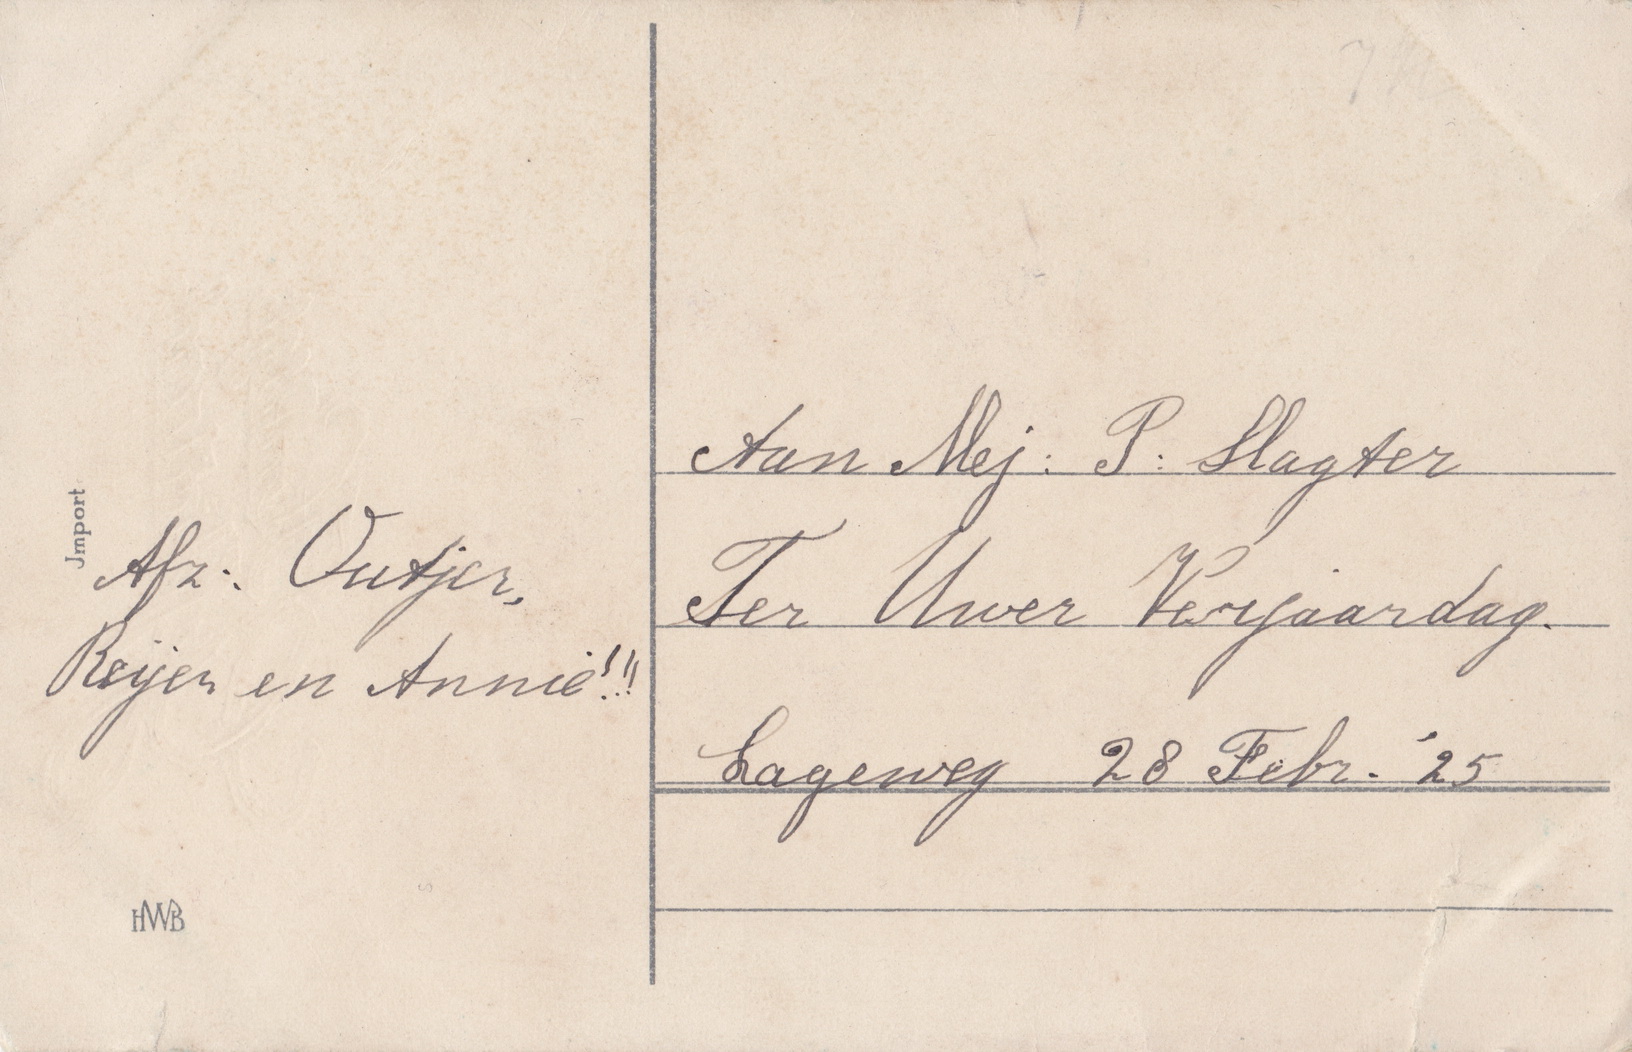 Afz:. Outjer,
Reijer en Annie!!!
Aan Mej: P: Slagter
Ter Uwer Verjaardag.
Lageweg 28 Febr. '25
Jmport
HWB